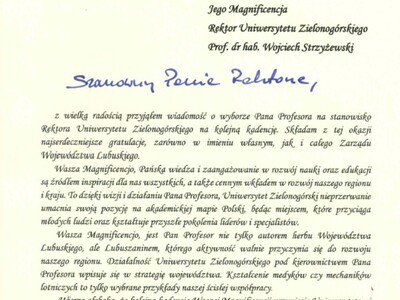 Jego Magnificencja
Rektor Uniwersytetu Zielonogórskiego
Prof. dr hab. Wojciech Strzyżewski
Szanowny Panie Rektorze,
z wielką radością przyjąłem wiadomość o wyborze Pana Profesora na stanowisko
Rektora Uniwersytetu Zielonogórskiego na kolejną kadencję. Składam z tej okazji
najserdeczniejsze gratulacje, zarówno w imieniu własnym, jak i całego Zarządu
Województwa Lubuskiego.
Wasza Magnificencjo, Pańska wiedza i zaangażowanie w rozwój nauki oraz edukacji
są źródłem inspiracji dla nas wszystkich, a także cennym wkładem w rozwój naszego regionu
i kraju. To dzięki wizji i działaniu Pana Profesora, Uniwersytet Zielonogórski nieprzerwanie
umacnia swoją pozycję na akademickiej mapie Polski, będąc miejscem, które przyciąga
młodych ludzi oraz kształtuje przyszłe pokolenia liderów i specjalistów.
Wasza Magnificencjo, jest Pan Profesor nie tylko autorem herbu Województwa
Lubuskiego, ale Lubuszaninem, którego aktywność walnie przyczynia się do rozwoju
naszego regionu. Działalność Uniwersytetu Zielonogórskiego pod kierownictwem Pana
Profesora wpisuje się w strategię województwa. Kształcenie medyków czy mechaników
lotniczych to tylko wybrane przykłady naszej ścisłej współpracy.